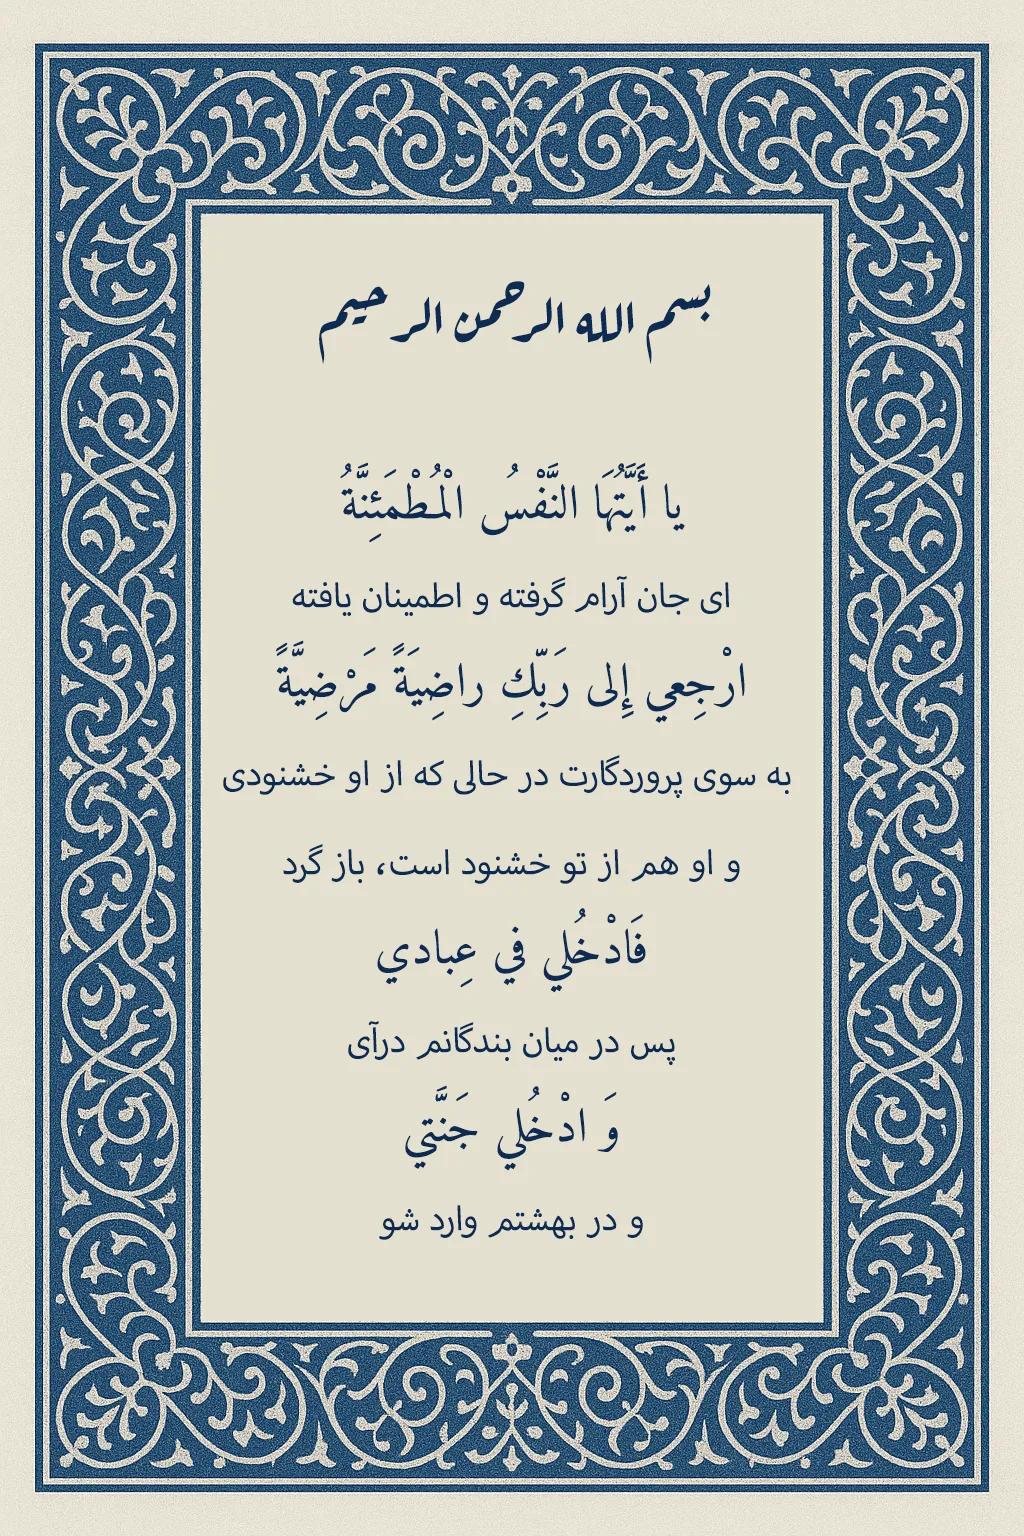 بسم الله الرحمن الرحیم
يا أَيَّتُهَا النَّفْسُ الْمُطْمَئِنَّةُ
ای جان آرام گرفته و اطمینان یافته
ارْجِعي إِلى رَبِّكِ راضِيَةً مَرْضِيَّةً
به سوی پروردگارت در حالی که از او خشنودی
و او هم از تو خشنود است، باز گرد
فَادْخُلي في عِبادي
پس در میان بندگانم درآی
وَ ادْخُلي جَنَّتي
و در بهشتم وارد شو